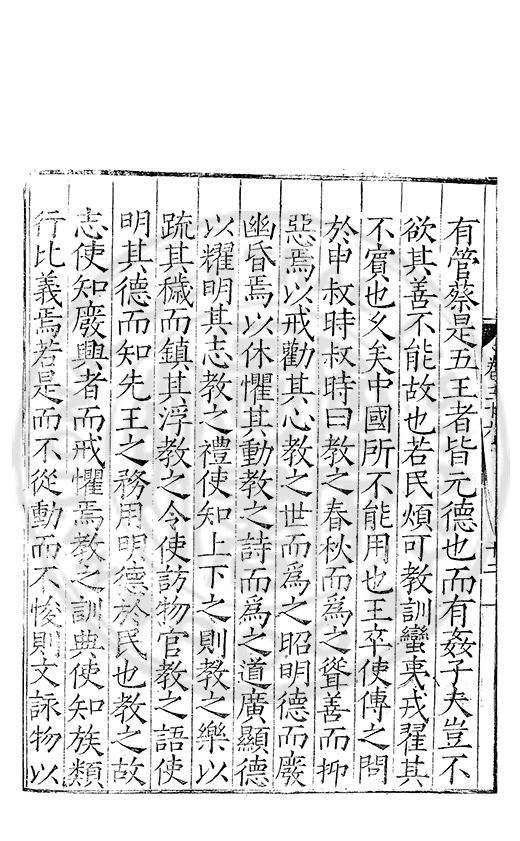 有管蔡是五王者皆元德也而有姦子夫豈不
欲其善不能故也若民煩可教訓蠻夷戎翟其
不賓也久矣中國所不能用也王卒使傅之問
於申叔時叔時曰教之春秋而為之聳善而抑
惡焉以戒勸其心教之世而為之昭明德而廢
幽昏焉以休懼其動教之詩而為之道廣顯德
以耀明其志教之禮使知上下之則教之樂以
疏其穢而鎮其浮教之令使訪物官教之語使
明其德而知先王之務用明德於民也教之故
志使知廢興者而戒懼焉教之訓典使知族類
行比義焉若是而不從動而不悛則文詠物以
十二